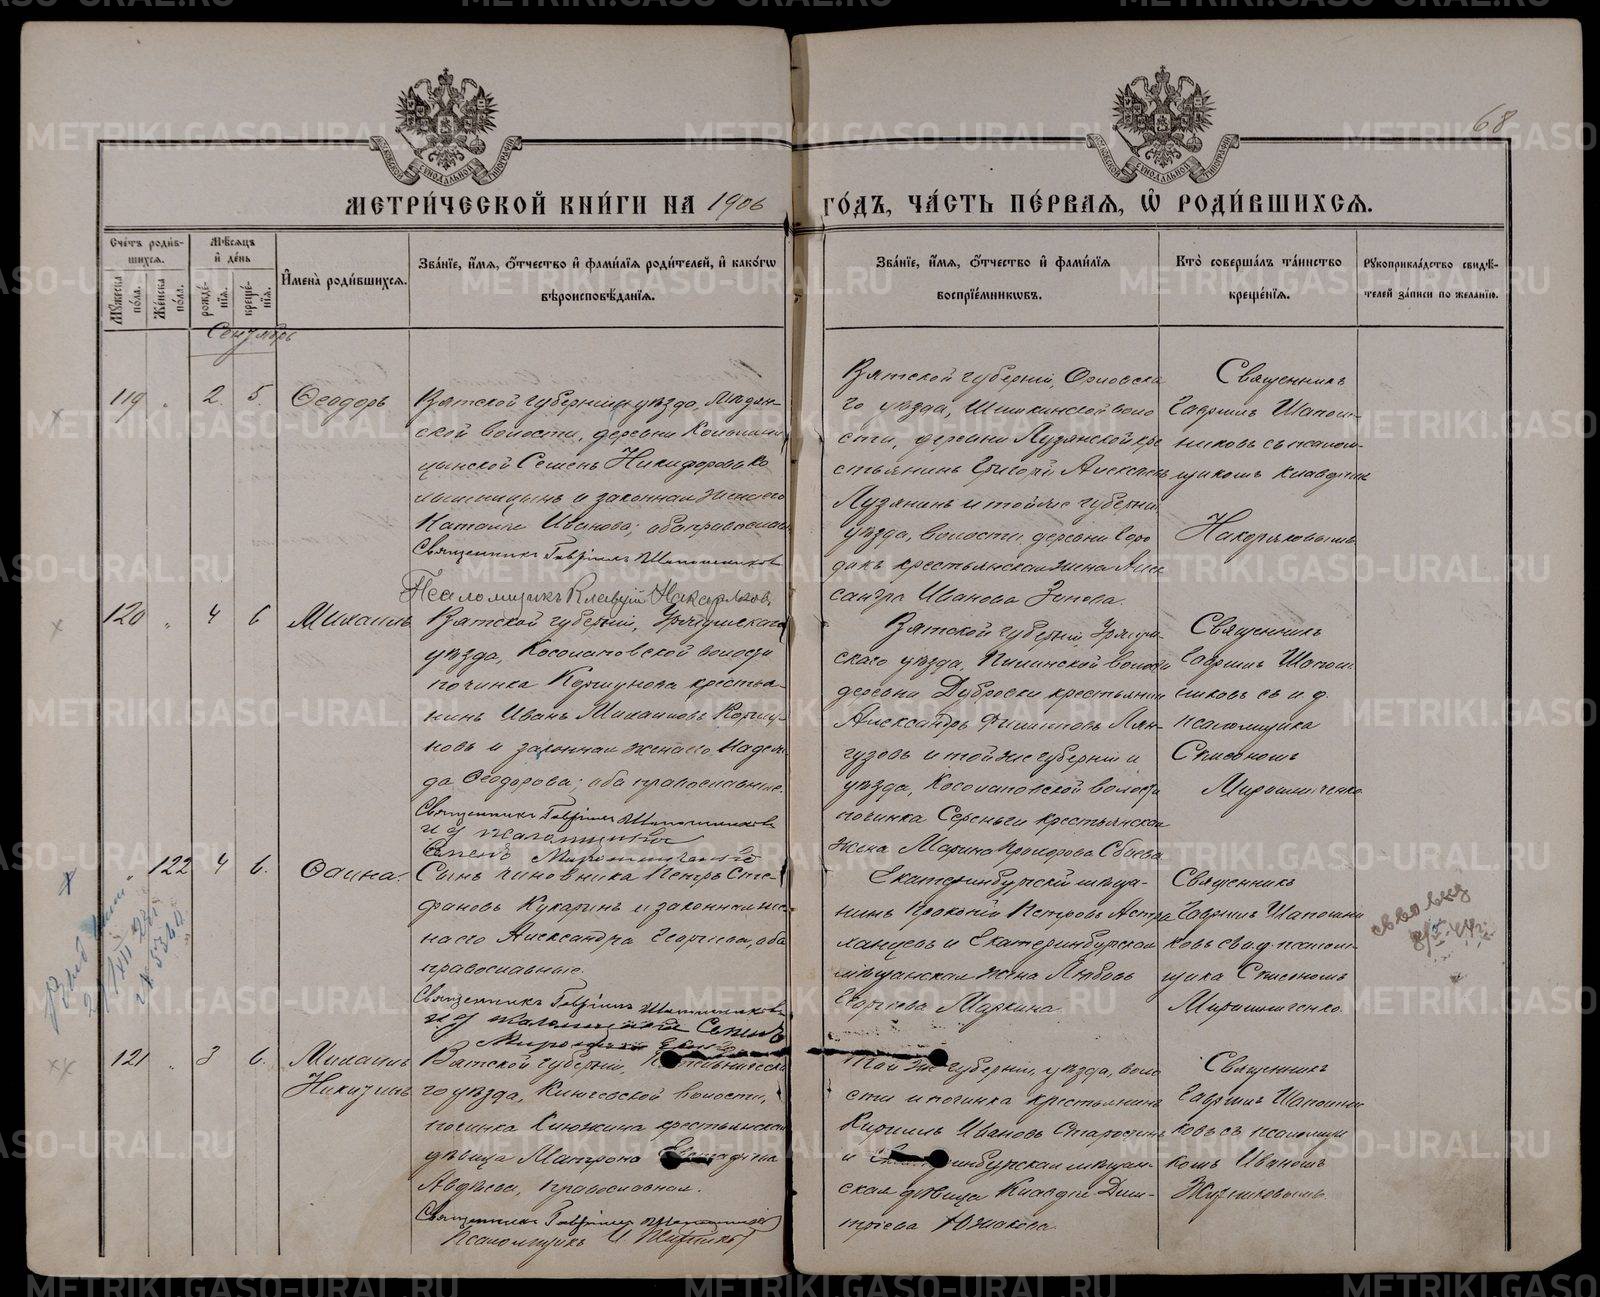 68
МЕТРИ́ЧЕСКОЙ КНИ́ГИ НА 1906 ГО́ДЪ, ЧА́СТЬ ПЕ́РВАЯ, Ѡ҆ РОДИ́ВШИХСЯ.
Сче́тъ роди́в-
шихся.
Мꙋ́жеска по́ла.
Же́нска по́ла.
Мѣ́сяцъ
и҆ де́нь
рожде́-
нїя.
креще́-
нїя.
И҆мена̀ роди́вшихся.
Зва́нїе, и҆́мя, ѻ҆́тчество и҆ фами́лїя роди́телей, и҆ како́гѡ
вѣроисповѣ́данїя.
Зва́нїе, и҆́мя, ѻ҆́тчество и҆ фами́лїя
воспрїе́мниковъ.
Кто̀ соверша́лъ та́инство
креще́нїя.
Рꙋкоприкла́дство свидѣ́-
телей за́писи по жела́нїю.
Сентябрь
119 " 2. 5. Ѳеодоръ
Вятской губерніи и уѣзда,
ской волости, деревни
Семенъ Никифоровъ Ко
и законная жена его
Наталія Иванова; оба православн
Священникъ Гавріилъ Шапошниковъ
Псаломщикъ Клавдій Накоряковъ
Вятской губерніи, Орловска
го уѣзда, Шишкинской воло
сти, деревни Лузянской кре
стьянинъ Григорій Алексѣевъ
Лузянинъ и той же губерніи
уѣзда, волости, деревни
крестьянская жена Алек
сандра Иванова Зонова.
Священникъ
Гавріилъ Шапош-
никовъ съ псалом-
щикомъ Клавдіем
Накоряковымъ
120 " 4 6 Михаилъ
Вятской губерніи, Уржумскаго
уѣзда, Косолаповской волости
починка Коршунова крестья-
нинъ Иванъ Михаиловъ Коршу-
новъ и законная жена его Надеж-
да Ѳеодорова; оба православные.
Священникъ Гавріилъ Шапошниковъ
и д псаломщика
Семенъ Мирошниченко
Вятской губерніи, Уржум-
скаго уѣзда, Пилинской волости
деревни Дубровки крестьянин
Александръ Филипповъ Лян-
гузовъ и той же губерніи и
уѣзда, Косолаповской волости
починка Сереньги крестьянская
жена Марина Прохорова Сбоева
Священникъ
Гавріилъ Шапош
никовъ съ и. д.
псаломщика
Симеономъ
Мирошниченко
" 122 4 6. Ѳаина.
Сынъ чиновника Петръ Сте-
фановъ Кукаринъ и законная же-
на его Александра Георгіева, оба
православные.
Священникъ Гавріилъ Шапошниковъ
и д псаломщика Семенъ
Мирошниченко
Екатеринбургскій мѣща-
нинъ Прокопій Петровъ Астра
ханцевъ и Екатеринбургская
мѣщанская жена Любовь
Георгіева Маркина.
Священникъ
Гавріилъ Шапошни
ковъ съ и. д. псалом-
щика Симеономъ
Мирошниченко.
121 " 3 6. Михаилъ
Никитинъ
Вятской губерніи,
го уѣзда, Ключевской волости,
починка Клюжина крестьянская
дѣвица Матрона
Авдѣева, православная.
Священникъ Гавріилъ Шапошников
Псаломщикъ И Житников
Той же губерніи, уѣзда, воло
сти и починка крестьянинъ
Кириллъ Ивановъ Старостинъ
и Екатеринбургская мѣщан-
ская дѣвица Клавдія Дими-
тріева Южакова.
Священникъ
Гавріилъ Шапошни
ковъ съ псаломщи
комъ Иваномъ
Житниковымъ.